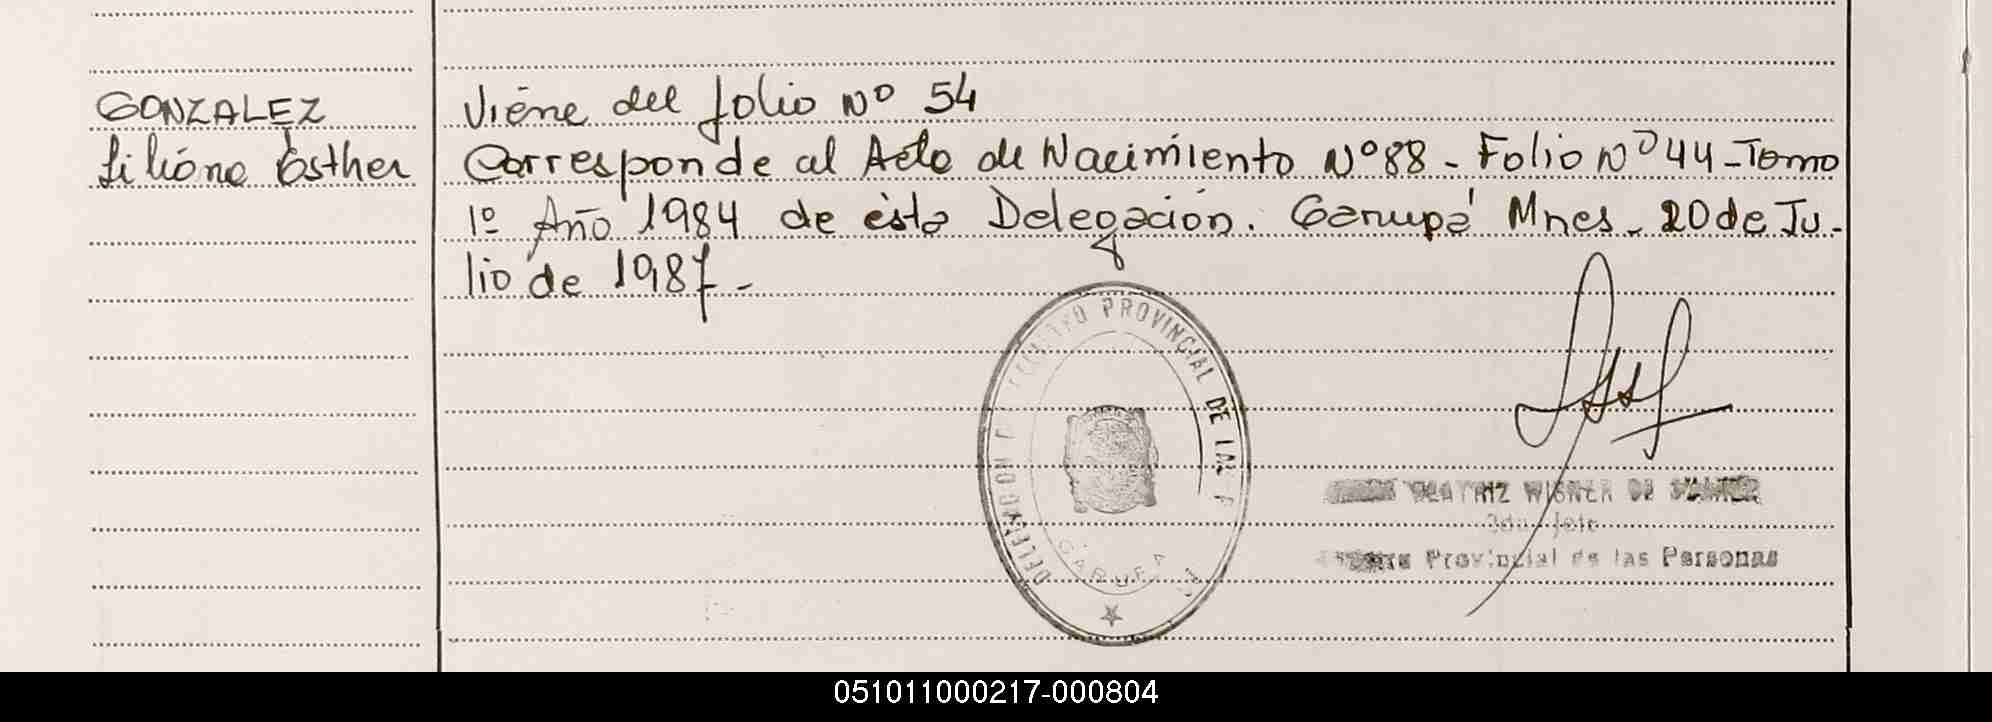 GONZALEZ
Liliana Esther
Viene del folio Nº 54
Corresponde al Acta de Nacimiento Nº 88 - Folio Nº 44 - Tomo
1º Año 1984 de ésta Delegación. Garupá Mnes. 20 de Ju-
lio de 1987 -
PROVINCIAL DE LAS P
DELEGACION
GARUPA
BEATRIZ WISNER DE
Jefe
Provincial de las Personas
051011000217-000804